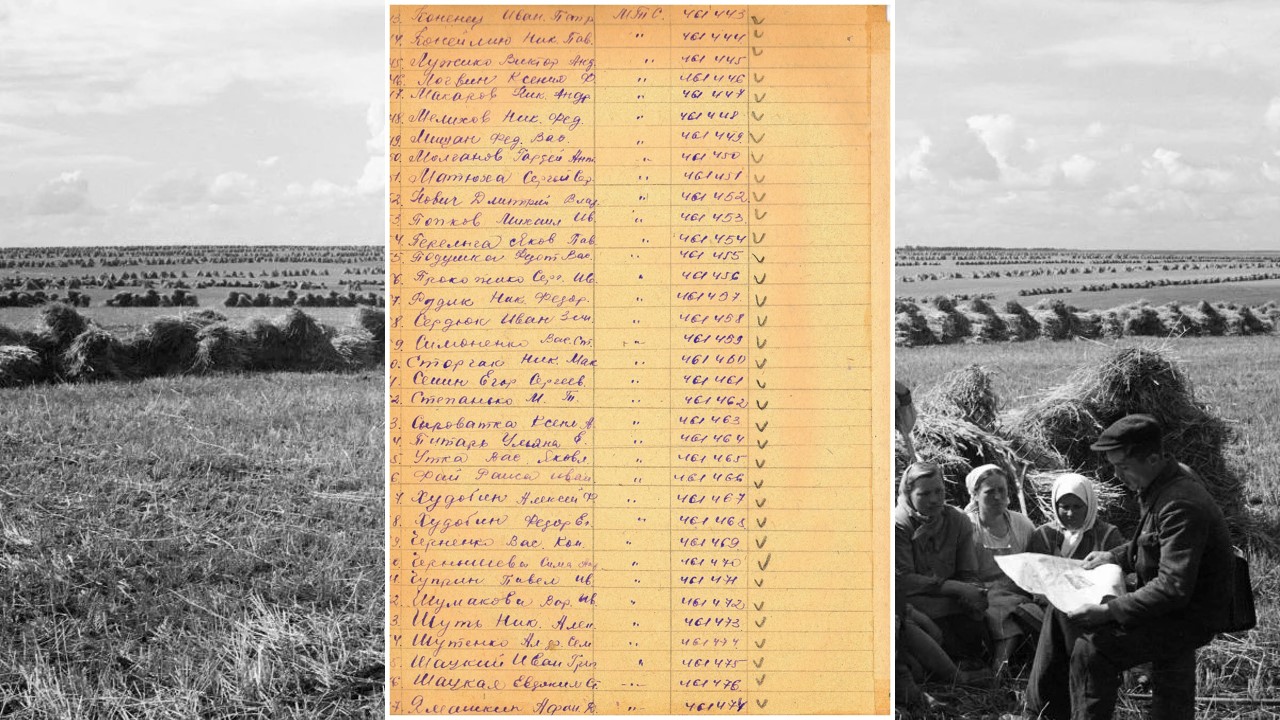 Ив. Петр. М.Т.С. 461443
14. Ник. Пав. " 461444
Лужейко Виктор Анд " 461445
16. Логвин Ксения Ф " 461446
17. Макаров Ник. Андр " 461447
18. Мелихов Ник. Фед. " 461448
19. Мишан Фед. Вас. " 461449
Молчанов Гордей Ант. " 461450
Матюха Сергей Сер. " 461451
Нович Дмитрий Влад " 461452
3 Попков Михаил Ив. " 461453
4. Перельга Яков Пав. " 461454
5. Подушка Вас. " 461455
6. Серг. Ив. " 461456
7. Рудик Ник. Федор. " 461457
8. Сердюк Иван " 461458
9. Симоненко Вас. Ст. " 461459
Сторчак Ник. Мак " 461460
1. Семин Егор Сергеев. " 461461
2. Степанько М. Т. " 461462
3. Сыроватка Ксен. А. " 461463
4. Титарь Ульяна Е. " 461464
5. Утка Вас. Яковл. " 461465
6. Фай Раиса Иван " 461466
7. Худобин Алексей Ф " 461467
8. Худобин Федор Ев. " 461468
9. Черненко Вас. Кон. " 461469
Чернышева Сима " 461470
Чуприн Павел Ив. " 461471
2. Шумакова Вар. Ив. " 461472
3. Шуть Ник. Алек. " 461473
4. Шутенко Сем " 461474
5. Шацкий Иван Григ " 461475
6. Шацкая Евдоким Ст. " 461476
7. Ямашкин Афан " 461477